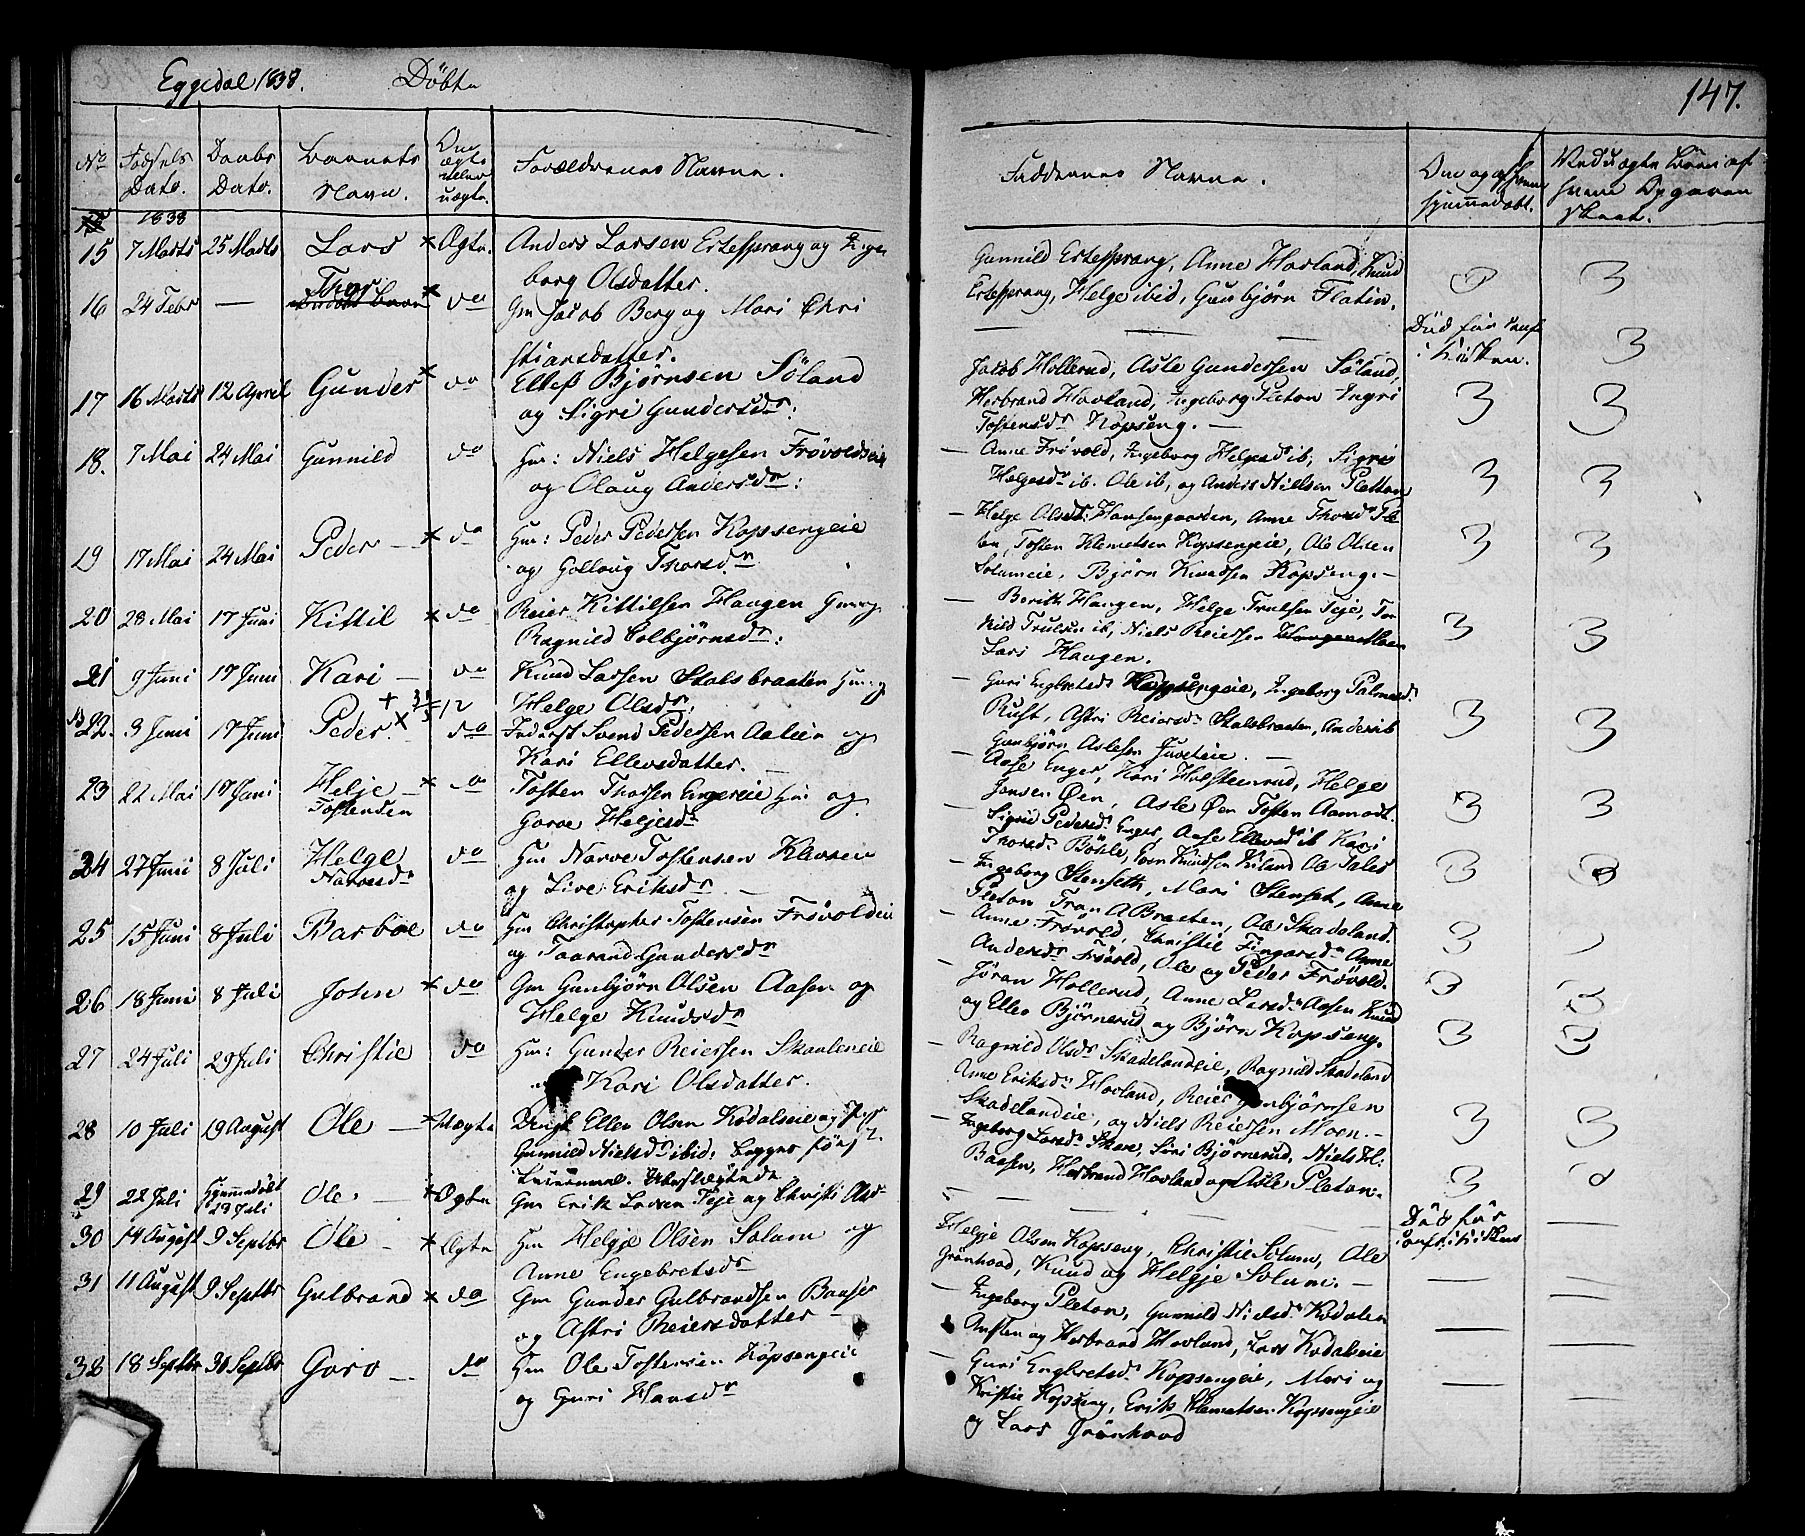 Eggedal 1838. Döbte
147.
No
Födsels Dato.
Daabs Dato.
Barnets Navn.
Om ægte eller uægte.
Forældrenes Navne.
Faddernes Navne.
Om og af hvem hjemmedöbt.
1838
15 7 Marts 25 Marts Lars × Ægte. Anders Larsen Ertesprang og Inge
borg Olsdatter.
Gunnild Ertesprang, Anne Hovland, Knud
Ertesprang, Helge ibid, Gunbjörn Flatin.
16 24 Febr — Thor × do Gm Jacob Berg og Mari Chri
stiansdatter.
— — —
Död för
i Kirken.
3
17 16 Marts 12 April Gunder × do Ellef Björnsen Söland
og Sigri Gundersdr:
Jakob Hollerud, Asle Gundersen Söland,
Herbrand Hovland, Ingeborg Pleton Ingri
Tostensdr Kopseng. —
3 3
18. 7 Mai 24 Mai Gunnild do Hm: Niels Helgesen Frövoldeie
og Olaug Andersdr:
— Anne Frövold, Ingeborg Helgesdr ib; Sigri
Helgesdr ib. Ole ib, og Anders Nielsen Pletton
3 3
19 17 Mai 24 Mai Peder — × do Hm: Peder Pedersen Kopsengeie
og Gollaug Thorsdr
— Helge Olsdr: Hansengaarden, Anne Thorsdr Ple
ten, Tosten Klemetsen Kopsengeie, Ole Olsen
Solumeie, Björn Knudsen Kopseng. —
3 3
20 28 Mai 17 Juni Kittil × do Reier Kittilsen Haugen Hm og
Ragnild Colbjörnsdr:
— Berith Haugen, Helge Trulsen Teje, Tor
kild Trulsen ib, Niels Reiersen Moen
Lars Haugen.
3 3
21 9 Juni 17 Juni Kari — do Knud Larsen Stalsbraaten Hm og
Helge Olsdr:
— Guri Engbretsdr Kopsengeie, Ingeborg Palmesdr
Rust, Astri Reiersdr Stalsbraaten, Anders ib
Gunbjörn Aslesen Juveteie.
3 3
22. 3 Juni 17 Juni Peder × do Inderst Svend Pedersen Aslien og
Kari Ellevsdatter. —
— Aase Enger, Kari Holstenrud, Helge
Jonsen Öen, Asle Öen Tosten Aamodt.
3 3
23 22 Mai 17 Juni Helje — × do Tosten Thorsen Engereie Hm og
Tostensen
Goroe Heljesdr
— Sigrid Pedersdr Enger, Aase Ellevsdr ib Kari
Thorsdr Böhle, Even Knudsen Kiland Ole Sales
24 27 Juni 8 Juli Helge do Hm Narve Tostensen Kleven
Narvesdr
og Live Eriksdr —
— Ingeborg Stenseth, Mari Stenset, Anne
Pleton Tron A Braaten, Ole Skadeland.
3 3
25 15 Juni 8 Juli Barboe do Hm Christopher Tostensen Frövoldeie
og Taarand Gundersdr
— Anne Frövold, Christie Fingarsdr Anne
Andersdr Frövld, Ole og Peder Frövold.
3
26 18 Juni 8 Juli John × do Gm Gunbjörn Olsen Aasen og
Helge Knudsdr
— Jöran Hollerud, Anne Larsdr Aasen Knud
og Ellev Björnerud og Björn Kopseng.
3 3
27 24 Juli 29 Juli Christie do Hm: Gunder Reiersen Skarteneie
Kari Olsdatter.
— Ragnild Olsdr Skadelandeie, Ragnild Skadeland
Anne Eriksdr Hovland, Reier Gunbjörnsen
Skadelandeie, og Niels Reiersen Moen. —
3 3
28 10 Juli 19 August Ole — × Uægte Drengk Ellev Olsen Kodalseie og Pige
Gunnild Nielsdr ibid: Begges förste
Leiermaal.
— Ingeborg Larsdr Skare, Siri Björnerud, Niels
Baasen, Herbrand Hovland og Asle Pleton. —
3 3
29 22 Juli Hjemmedöbt 29 Juli Ole — × Ægte Gm Erik Larsen Teje og Christi Olsdr
— — —
Död för
3
30 14 August 9 Septbr Ole — × Ægte Hm Helgje Olsen Solum og
Anne Engebretsdr
Helgje Olsen Kopseng, Christie Solum, Ole
Grönhovd, Knud og Helgje Solum. —
— —
31 11 August 9 Septbr Gulbrand × do Gm Gunder Gulbrandsen Baaser
og Astri Reiersdatter —
— Ingeborg Pleton, Gunnild Nielsdr Kodalen
Ansten og Herbrand Hovland, Lars Kodalseie
— —
32 18 Septbr 30 Septbr Goro — do Hm Ole Tostensen Kopsengeie
og Guri Hansdr
— Guri Engbretsdr Kopsengeie, Mari og
Kristie Kopseng, Erik Clemetsen Kopsengeie
og Lars Grönhovd
— —